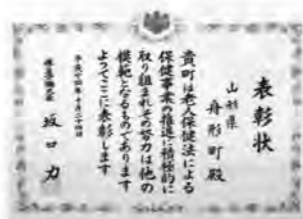 表彰状
山形県
舟形町殿
貴町は老人保健法による
保健事業の推進に積極的に
取り組まれその努力は他の
模範となるものであります
よってここに表彰します
平成十四年十月二十四日
厚生労働大臣 坂口力